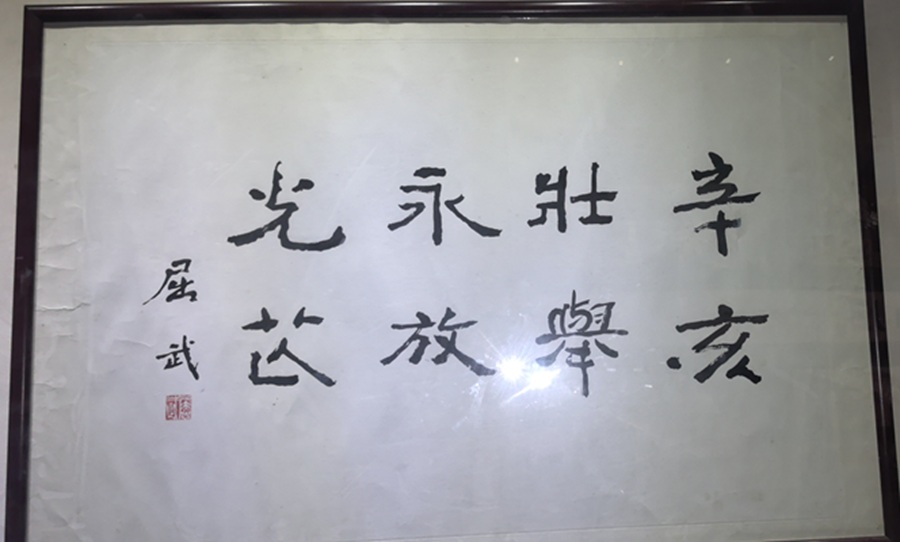 辛亥
壯舉
永放
光芒
屈武